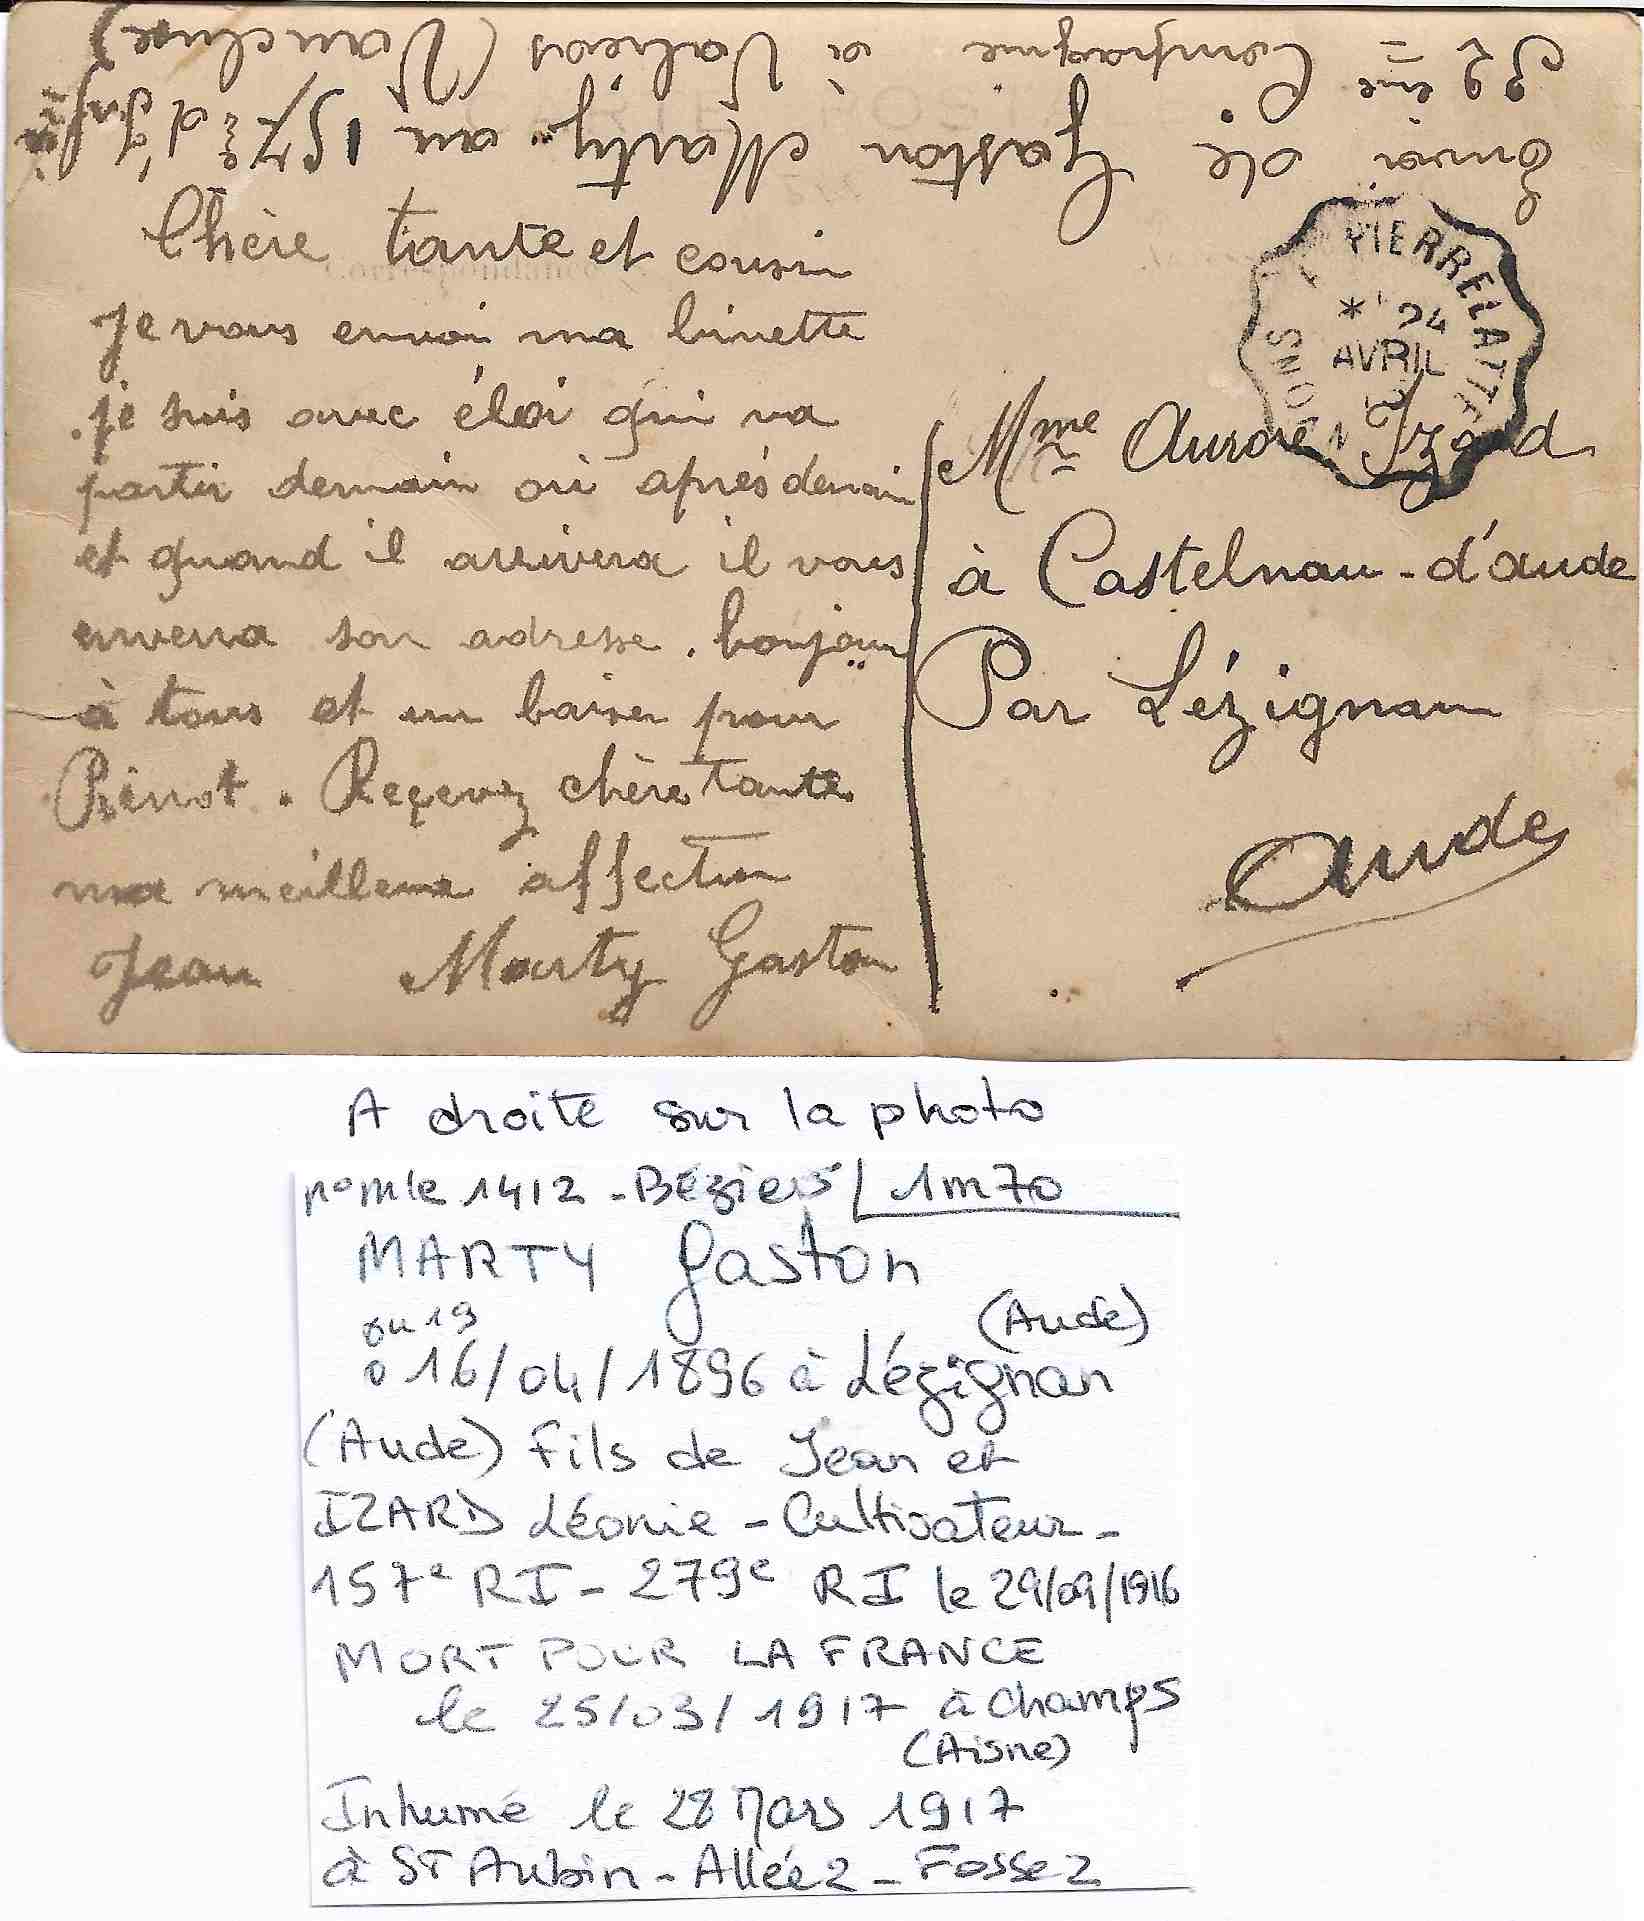 Envoi de Gaston Marty au 157e d'Infie
32ème Compagnie à Valréas (Vaucluse)
CARTE POSTALE
Correspondance
Chère tante et cousin
Je vous envoi ma binette
je suis avec éloi qui va
partir demain ou après demain
et quand il arrivera il vous
enverra son adresse. bonjour
à tous et un baiser pour
. Reçevez chère tante
ma meilleure affection
Jean Marty Gaston
PIERRELATTE
* 24
AVRIL
NYONS
Mme Aurore Izard
à Castelnau-d'aude
Par Lézignan
Aude
A droite sur la photo
n° mle 1412 - Béziers / 1m70
MARTY Gaston
ou 19
° 16/04/1896 à Lézignan
(Aude)
(Aude) Fils de Jean et
IZARD Léonie - Cultivateur -
157e RI - 279e RI le 29/09/1916
MORT POUR LA FRANCE
le 25/03/1917 à Champs
(Aisne)
Inhumé le 28 Mars 1917
à ST Aubin - Allée 2 - Fosse 2